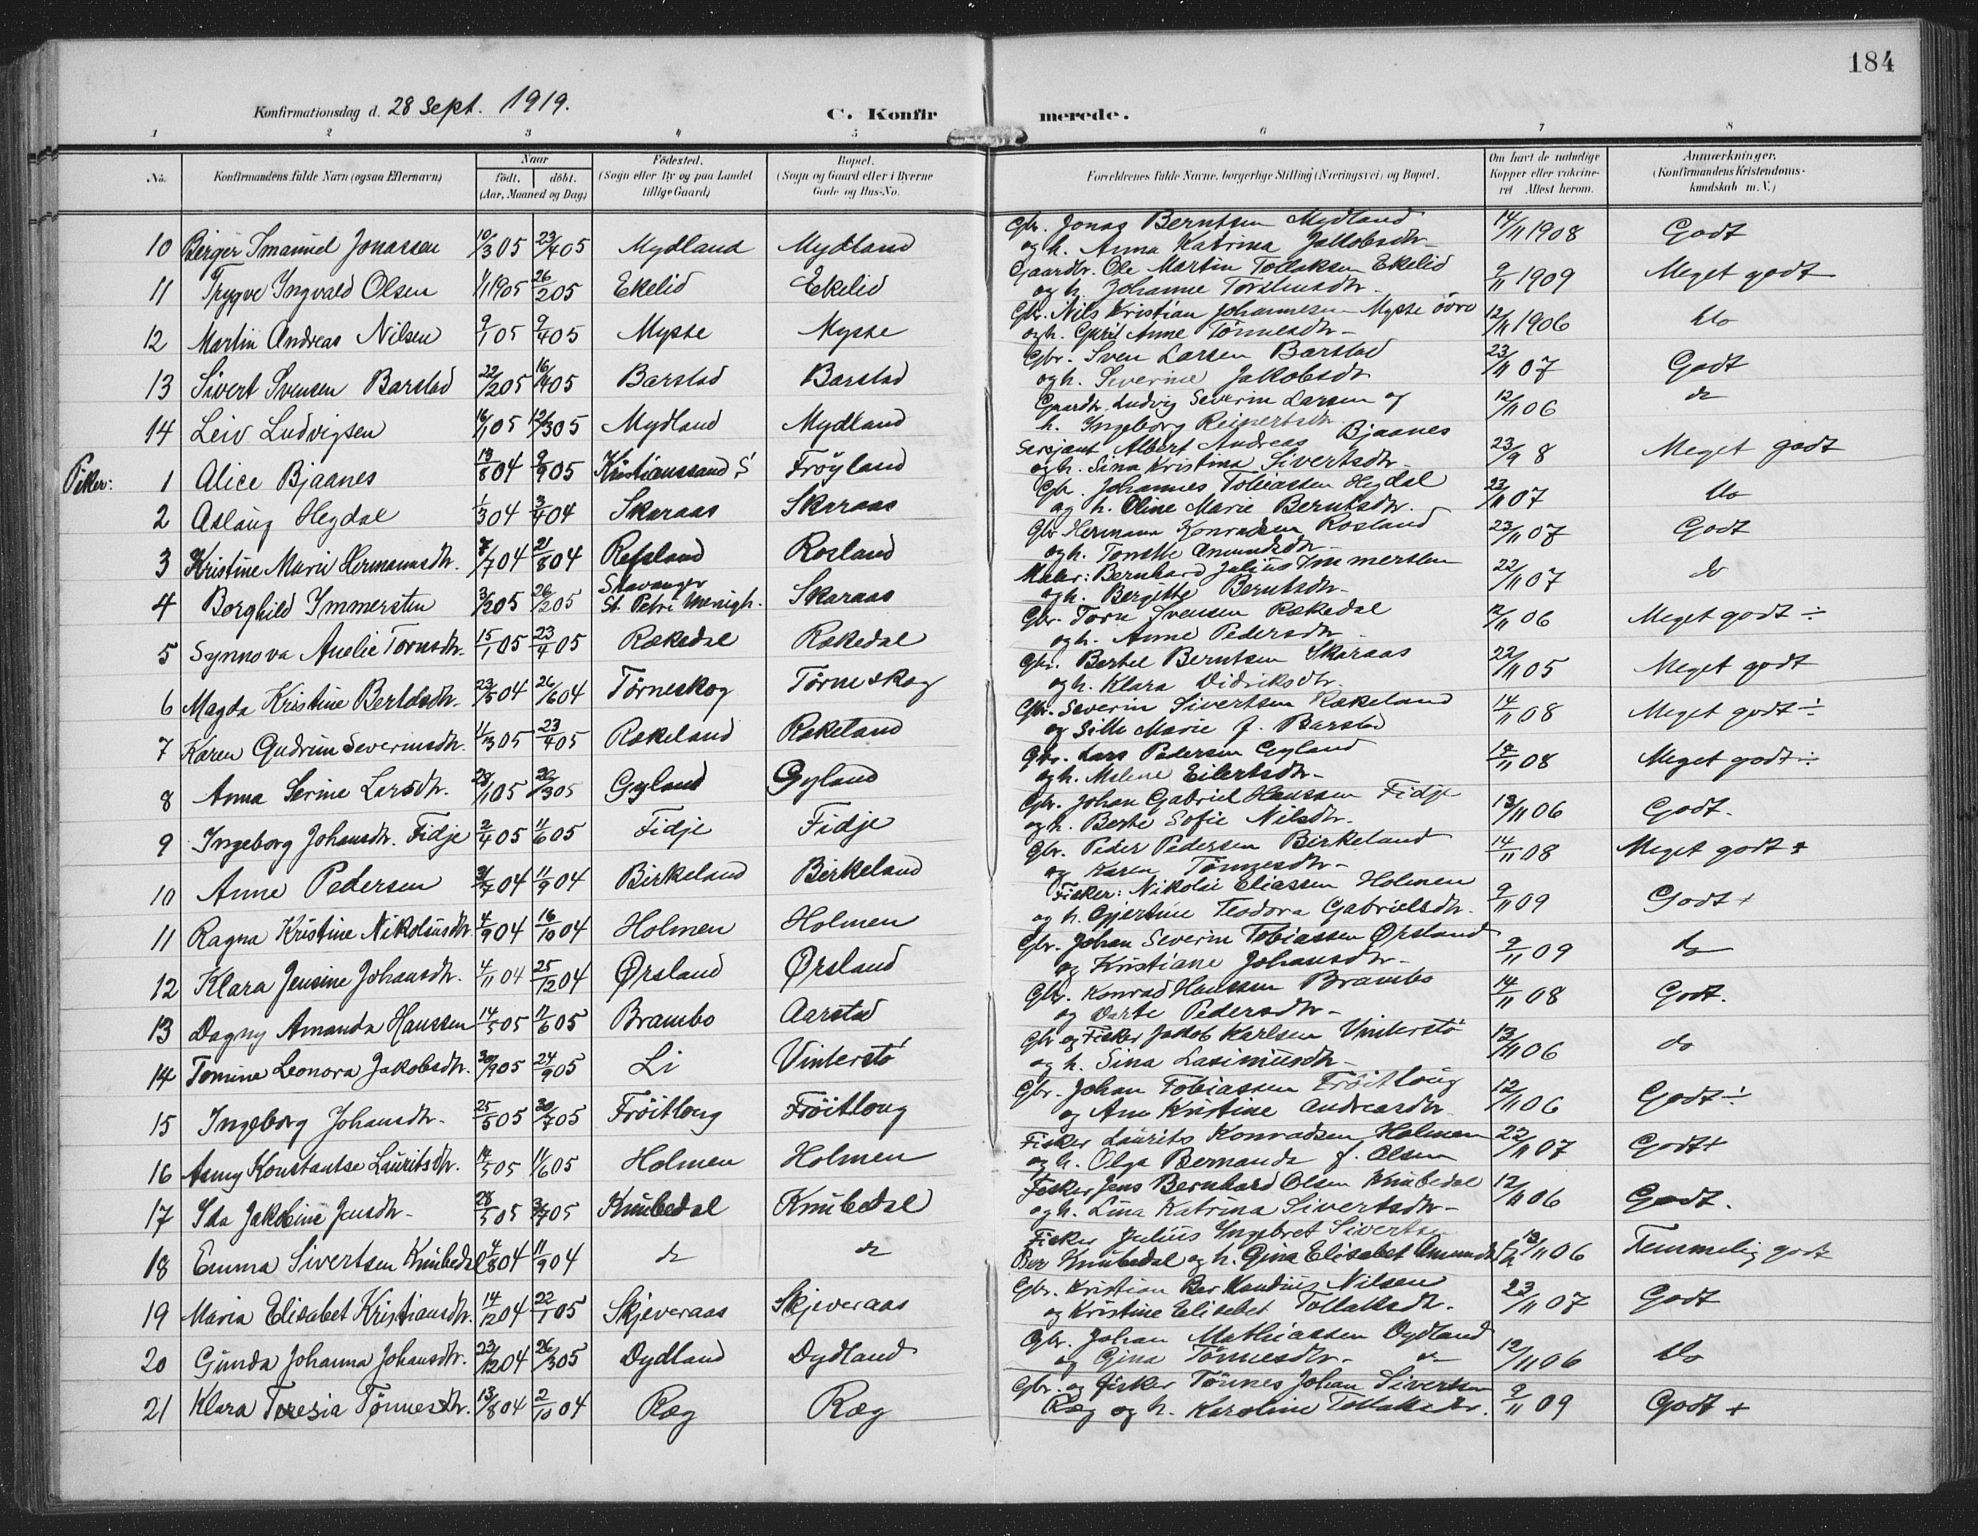 184
Konfirmationsdag d. 28 Sept. 1919. C. Konfirmerede.
1 2 3 4 5 6 7 8
No. Konfirmandens fulde Navn (ogsaa Efternavn) Naar födt. döbt. (Aar, Maaned og Dag) Födested. (Sogn eller By og paa Landet tillige Gaard) Bopæl. (Sogn og Gaard eller i Byerne Gade og Hus-No. Forældrenes fulde Navne, borgerlige Stilling (Næringsvei) og Bopæl. Om havt de naturlige Kopper eller vaksineret Attest herom. Anmærkninger. (Konfirmandens Kristendomskundskab m. V.)
10 Birger Smamuel Jonassen 10/3 05 23/4 05 Mydland Mydland Gbr. Jonas Berntsen Mydland og h. Anna Katrina Jakkobsdtr 14/11 1908 Godt
11 Trygve Ingvald Olsen 1/1 1905 26/2 05 Ekelid Ekelid Gaardbr. Ole Martin Tollaksen Ekelid og h. Johanne Torstensdtr. 9/11 1909 Meget godt
12 Martin Andreas Nilsen 9/1 05 9/4 05 Mysse Mysse Gbr. Nils Kristian Johannesen Mysse övre og h. Guril Anne Tönnesdtr 12/11 1906 do
13 Sivert Svensen Barstad 22/2 05 16/4 05 Barstad Barstad Gbr. Sven Larsen Barstad og h. Severine Jakobsdtr 23/11 07 Godt
14 Leiv Ludvigsen 16/1 05 12/3 05 Mydland Mydland Gaardbr. Ludvig Severin Larsen og h. Ingeborg Reinertsdtr. 12/11 06 do
Piker:
1 Alice Bjaanes 13/8 04 9/9 05 Kristianssand S Fröyland Sersjant Albert Andreas Bjaanes og h. Sina Kristina Sivertsdtr 23/9 8 Meget godt
2 Aslaug Hegdal 1/3 04 3/4 04 Skaraas Skaraas Gbr. Johannes Tobiassen Hegdal og h. Oline Marie Berntsdtr. 23/11 07 do
3 Kristine Marie Hermansdtr. 7/7 04 21/8 04 Refsland Rosland Gbr Hermann Konradsen Rosland og h. Tonette Amundsdtr 23/11 07 Godt
4 Borghild Immersten 3/2 05 26/2 05 Stavanger St. Petri Menigh. Skaraas Maler: Bernhard Julius Immersten og h. Bergitte Berntsdtr. 22/11 07 do
5 Synnova Amelie Tornsdtr. 15/1 05 23/4 05 Rækedal Rækedal Gbr. Torn Svensen Rækedal og h. Anne Pedersdtr 12/11 06 Meget godt ÷
6 Magda Kristine Bertelsdtr. 23/5 04 26/6 04 Törneskog Törneskog Gbr. Bertel Berntsen Skaraas og h. Klara Didriksdtr. 22/11 05 Meget godt
7 Karen Gudrun Severinsdtr. 1/3 05 23/4 05 Rækeland Rækeland Gbr. Severin Sivertsen Rækeland og Sille Marie f. Barstad 14/11 08 Meget godt ÷
8 Anna Serine Larsdtr. 28/1 05 20/3 05 Gyland Gyland Gbr. Lars Pedersen Gyland og h. Malene Eilertsdtr. 14/11 08 Meget godt ÷
9 Ingeborg Johansdtr. Fidje 2/4 05 11/6 05 Fidje Fidje Gbr. Johan Gabriel Hanssen Fidje og h. Berte Sofie Nilsdtr. 13/11 06 Godt.
10 Anne Pedersen 31/7 04 11/9 04 Birkeland Birkeland Gbr. Peder Pedersen Birkeland og Karen Tönnesdtr 14/11 08 Meget godt +
11 Ragna Kristine Nikolaisdtr 4/9 04 16/10 04 Holmen Holmen Fisker: Nikolai Eliassen Holmen og h. Gjertine Teodora Gabrielsdtr. 9/11 09 Godt +
12 Klara Jensine Johansdtr. 4/11 04 25/12 04 Ørsland Ørsland Gbr. Johan Severin Tobiassen Ørsland og Kristiane Johansdtr. 9/11 09 do
13 Dagny Amanda Hanssen 14/5 05 11/6 05 Brambo Aarstad Gbr. Konrad Hanssen Brambo og Dorte Pedersdtr 14/11 08 Godt.
14 Tomine Leonora Jakobsdtr. 30/9 05 24/9 05 Li Vinterstö Gbr og Fisker Jakob Karlsen Vinterstö og h. Sina Lasimusdtr 13/11 06 do
15 Ingeborg Johansdtr. 25/5 05 30/7 05 Fröitlong Fröitlong Gbr. Johan Tobiassen Fröitlong og Ane Kristine Andreasdtr. 12/11 06 Godt ÷
16 Asny Konstantse Lauritsdtr. 14/5 05 11/6 05 Holmen Holmen Fisker Laurits Konradsen Holmen og h. Olga Bernanda f. Olsen 22/11 07 Godt +
17 Ida Jakobine Jensdtr. 28/5 05 3/7 05 Knubedal Knubedal Fisker Jens Bernhard Olsen Knubedal og h. Lina Katrina Sivertsdtr 12/11 06 Godt.
18 Emma Sivertsen Knubedal 4/8 04 11/9 04 do do Fisker Julius Ingebret Sivertsen Knubedal og h. Gina Elisabet Amunds 13/11 06 Temmelig godt
19 Maria Elisabet Kristiansdtr. 14/12 04 22/1 05 Skjeveraas Skjeveraas Gbr. Kristian Nilsen og Kristine Elisabet Tollaksdtr. 23/11 07 Godt
20 Gunda Johanna Johansdtr. 23/12 04 26/3 05 Dydland Dydland Gbr. Johan Mathiassen Dydland og Gina Tönnesdtr. do 12/11 06 do
21 Klara Teresia Tönnesdtr. 13/8 04 2/10 04 Ræg Ræg Gbr. og fisker Tönnes Johan Sivertsen Ræg og h. Karoline Tollaksdtr. 9/11 09 Godt +